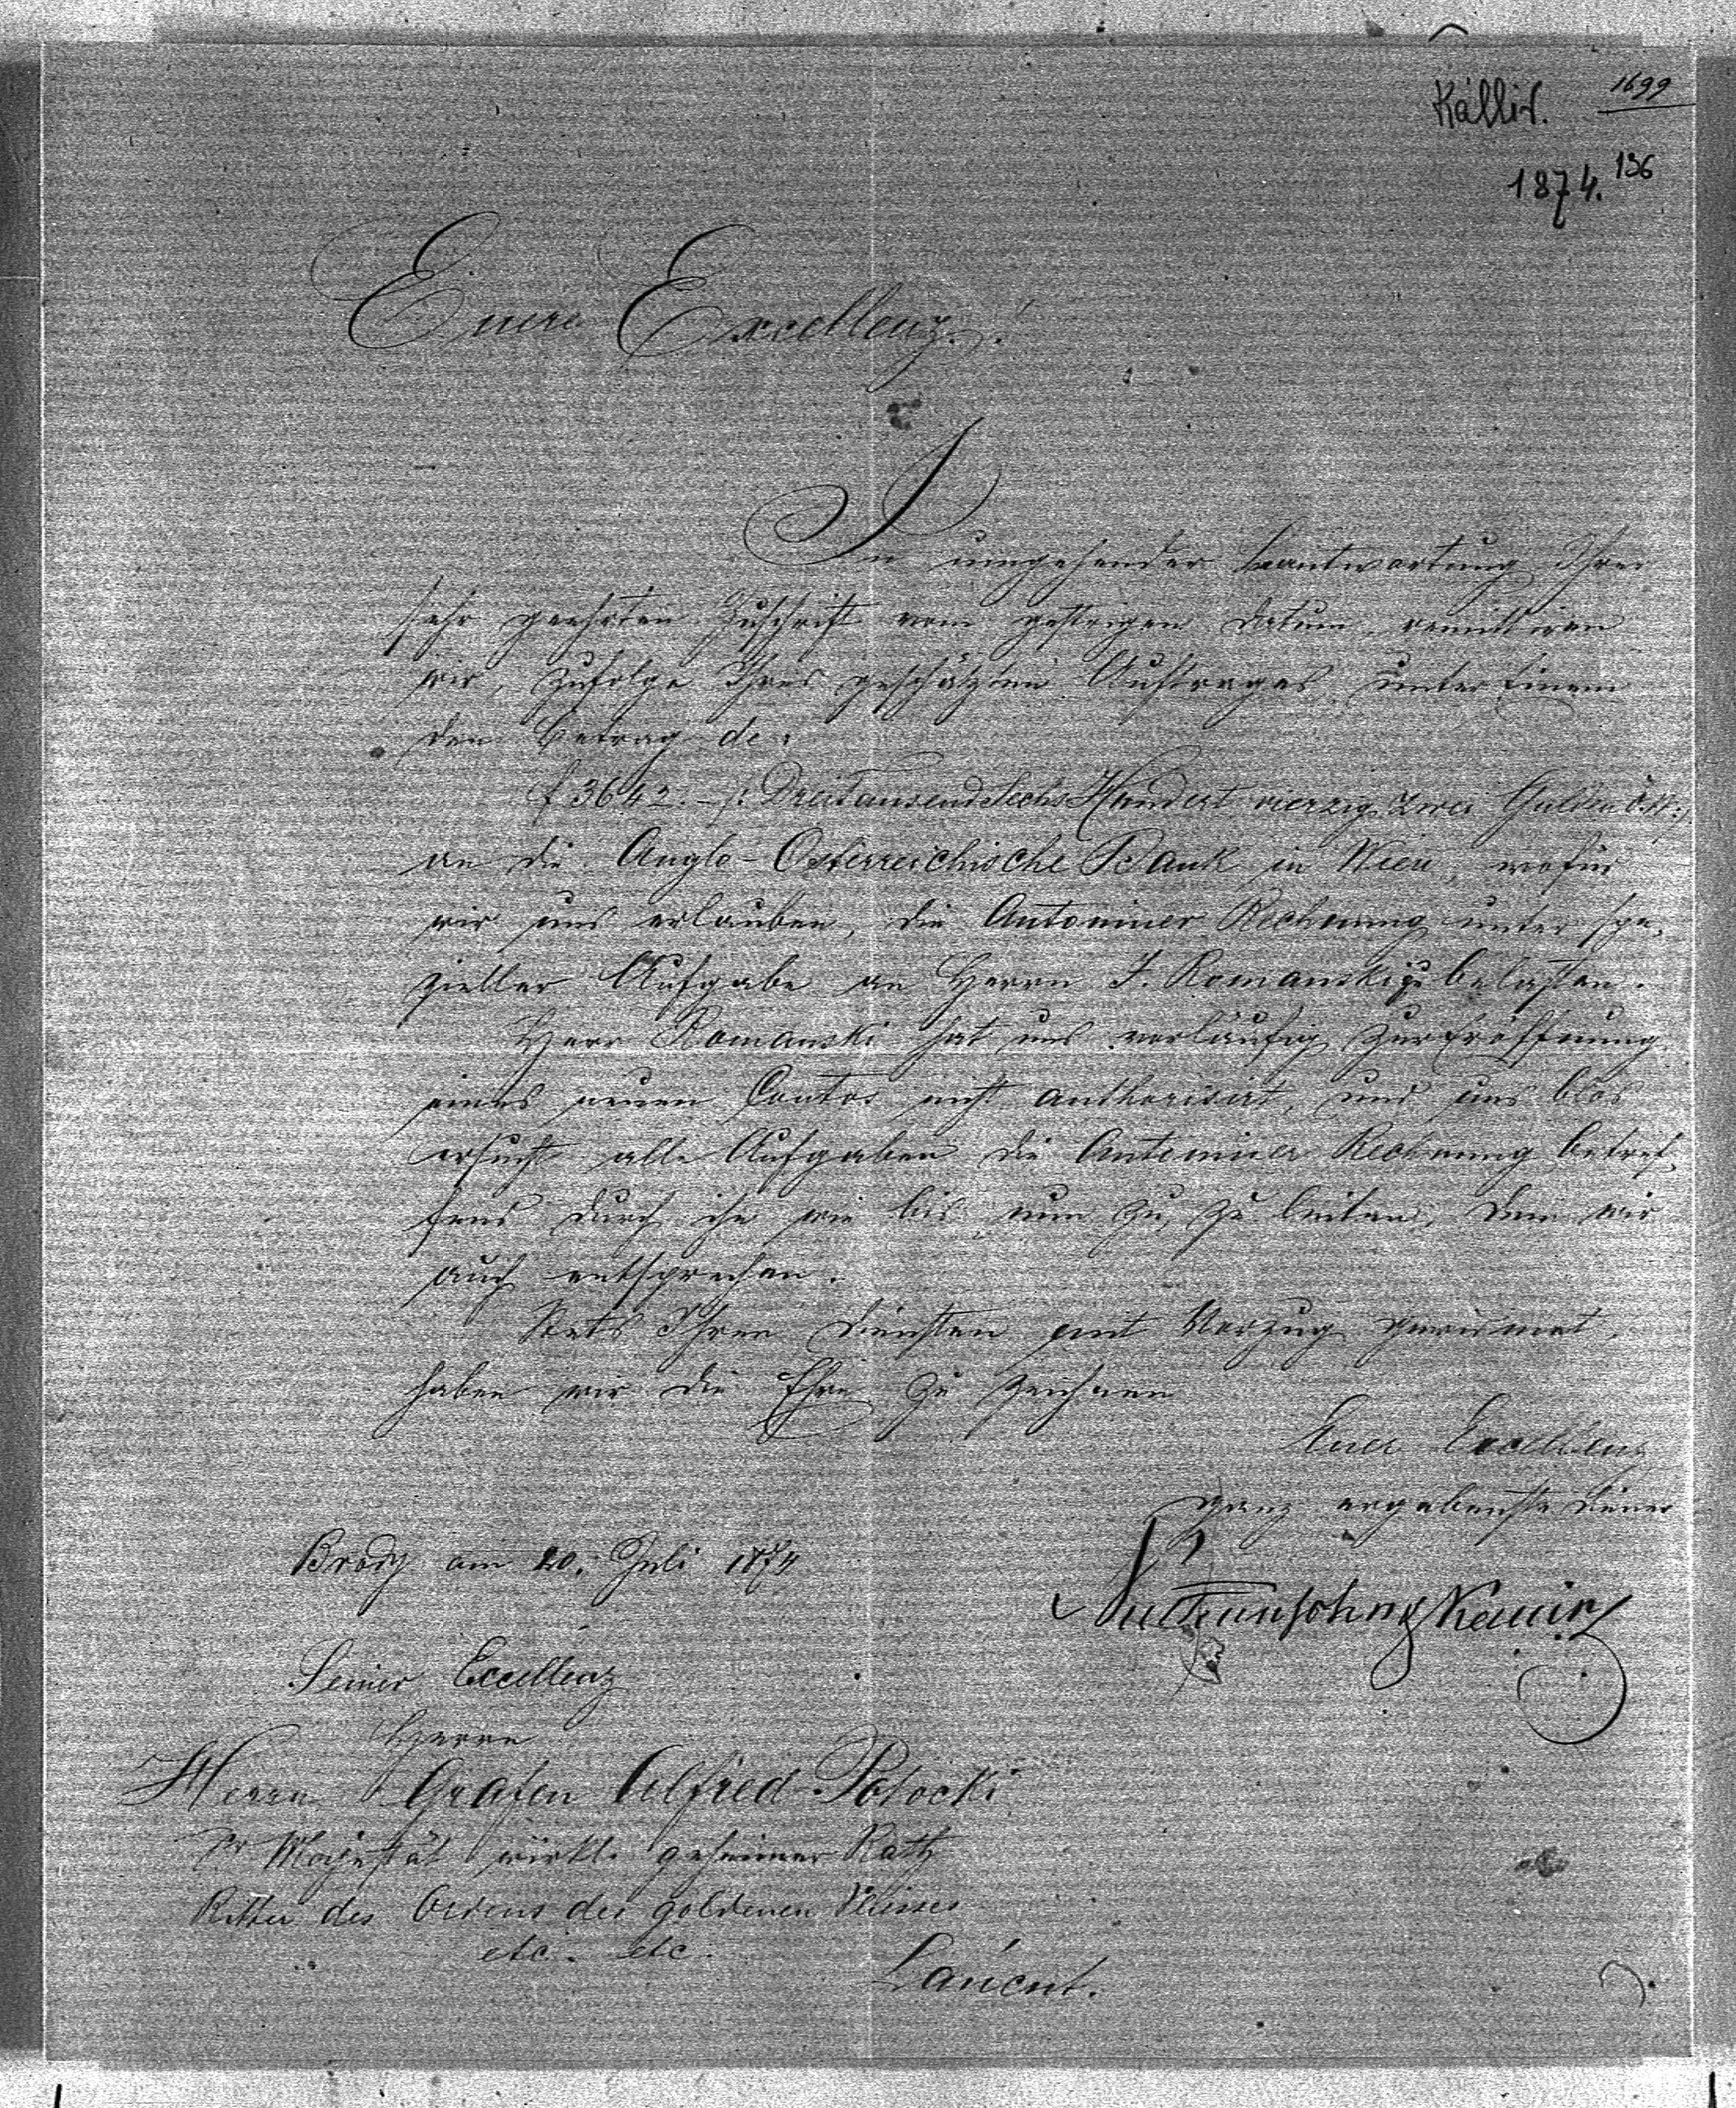 Kallir.
1699
136
1874.
Euere Excellenz!
In umgehender Beantwortung Ihrer
sehr geehrten Zuschrift vom gestrigen Datum, remittiren
wir, zufolge Ihres geschätzten Auftrages unter Einem
den Betrag de:
f 3642.- /: DreiTausendSechsHundert vierzig zwei Gulden ö.W:/
an die Anglo-Österreichische Bank in Wien, wofür
wir uns erlauben, die Antoniner Rechnung unter spe-
zieller Aufgabe an Herrn J. Romanski zu belasten.
Herr Romanski hat uns vorläufig zur Eröffnung
eines neuen Contos nicht authorisirt, und uns blos
ersucht alle Aufgaben die Antoniner Rechnung betref-
fend durch ihn wie bis nun zu, zu leiten, dem wir
auch entsprechen.
Stets Ihren Diensten mit Vorzug gewidmet,
haben wir die Ehre zu zeichnen
Euer Excellenz
ganz ergebenste Diener
Brody am 20. Juli 1874
Seiner Excellenz
Herrn
Herrn Grafen Alfred Potocki
Sr Majestät wirkl. geheimer Rath
Ritter des Ordens des goldenen Vliesses
etc. etc.
Łańcut.